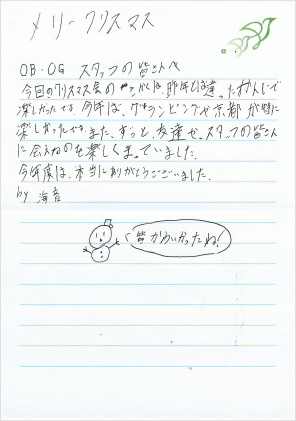 メリークリスマス
OB・OG スタッフの皆さんへ
今回のクリスマス会の は、昨年とは違ったかんじで
楽しかったです。今年は、グランピングや京都が特に
楽しかったです。また、ずっと、友達や、スタッフの皆さん
に会えるのを楽しくまっていました。
今年度は、本当にありがとうございました。
by 海音
皆かわいかったね!